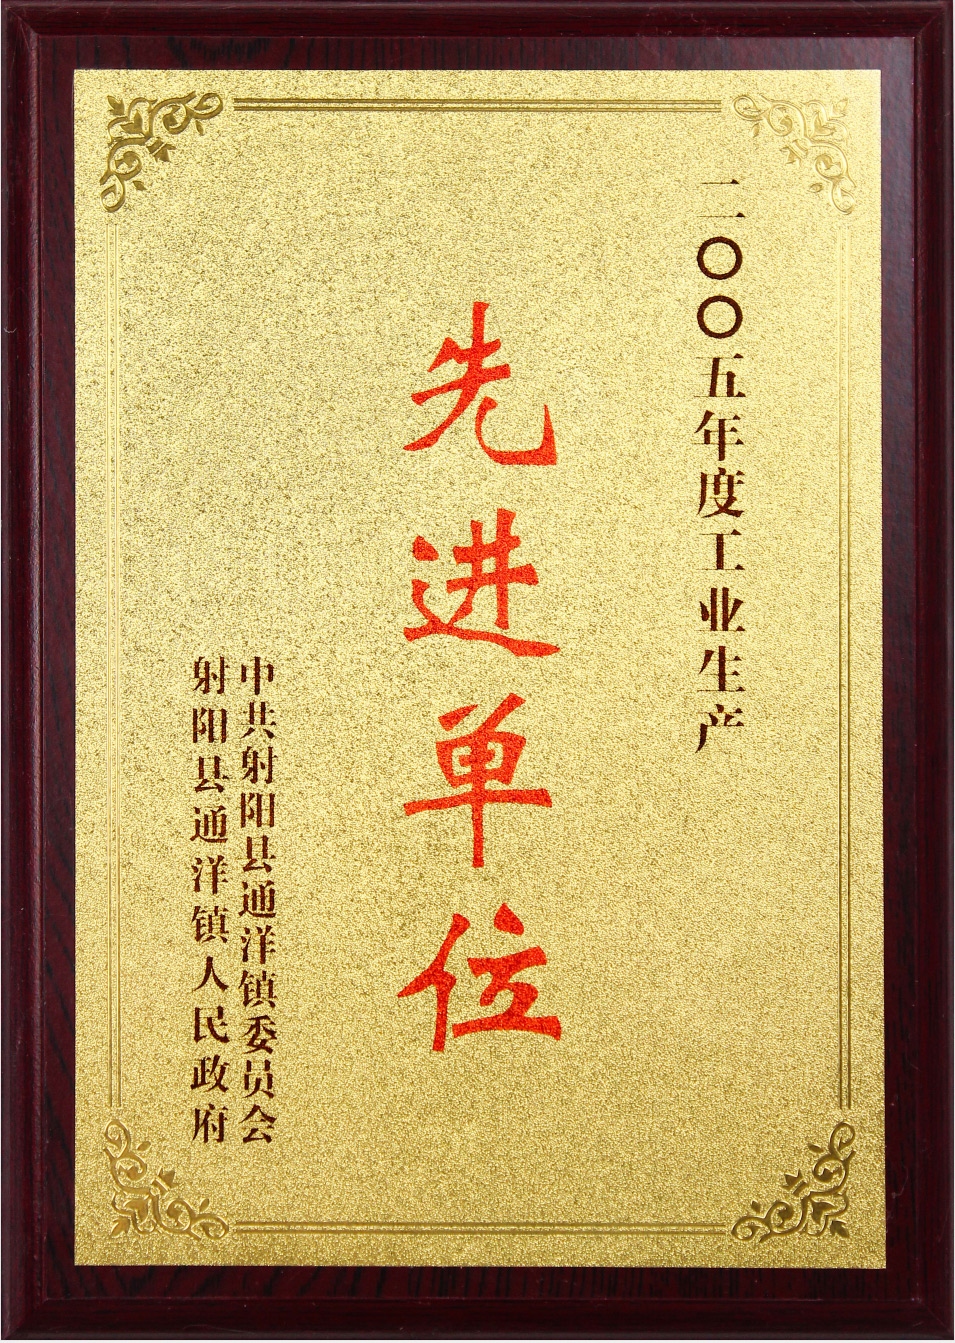 二〇〇五年度工业生产
先进单位
中共射阳县通洋镇委员会
射阳县通洋镇人民政府